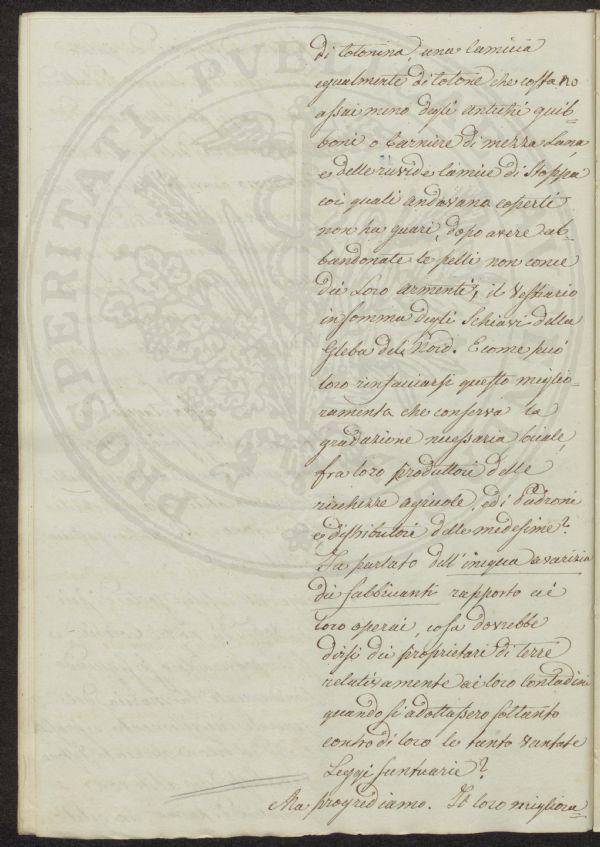 di cotonina, una camicia
egualmente di cotone che costano
assai meno degli antichi giub=
boni o Carniere di mezza Lana,
e delle ruvide camice di Stoppa
coi quali andavano coperti
non ha guari, dopo avere ab=
bandonate le pelli non conce
dei Loro armenti, il Vestiario
insomma degli Schiavi della
Gleba del Nord. E come può
loro rinfacciarsi questo miglio=
ramento che conserva la
gradazione necessaria
fra loro produttori delle
ricchezze agricole, ed i Padroni
e distributori delle medesime?
Fa parlato dell'iniqua avarizia
dei fabbricanti rapporto ai
loro operai, cosa dovrebbe
dirsi dei proprietari di terre
relativamente ai loro Contadini
quando si adottassero soltanto
contro di loro le tanto vantate
Leggi suntuarie?
Ma progrediamo. Il loro migliora=
PROSPERITATI PUB